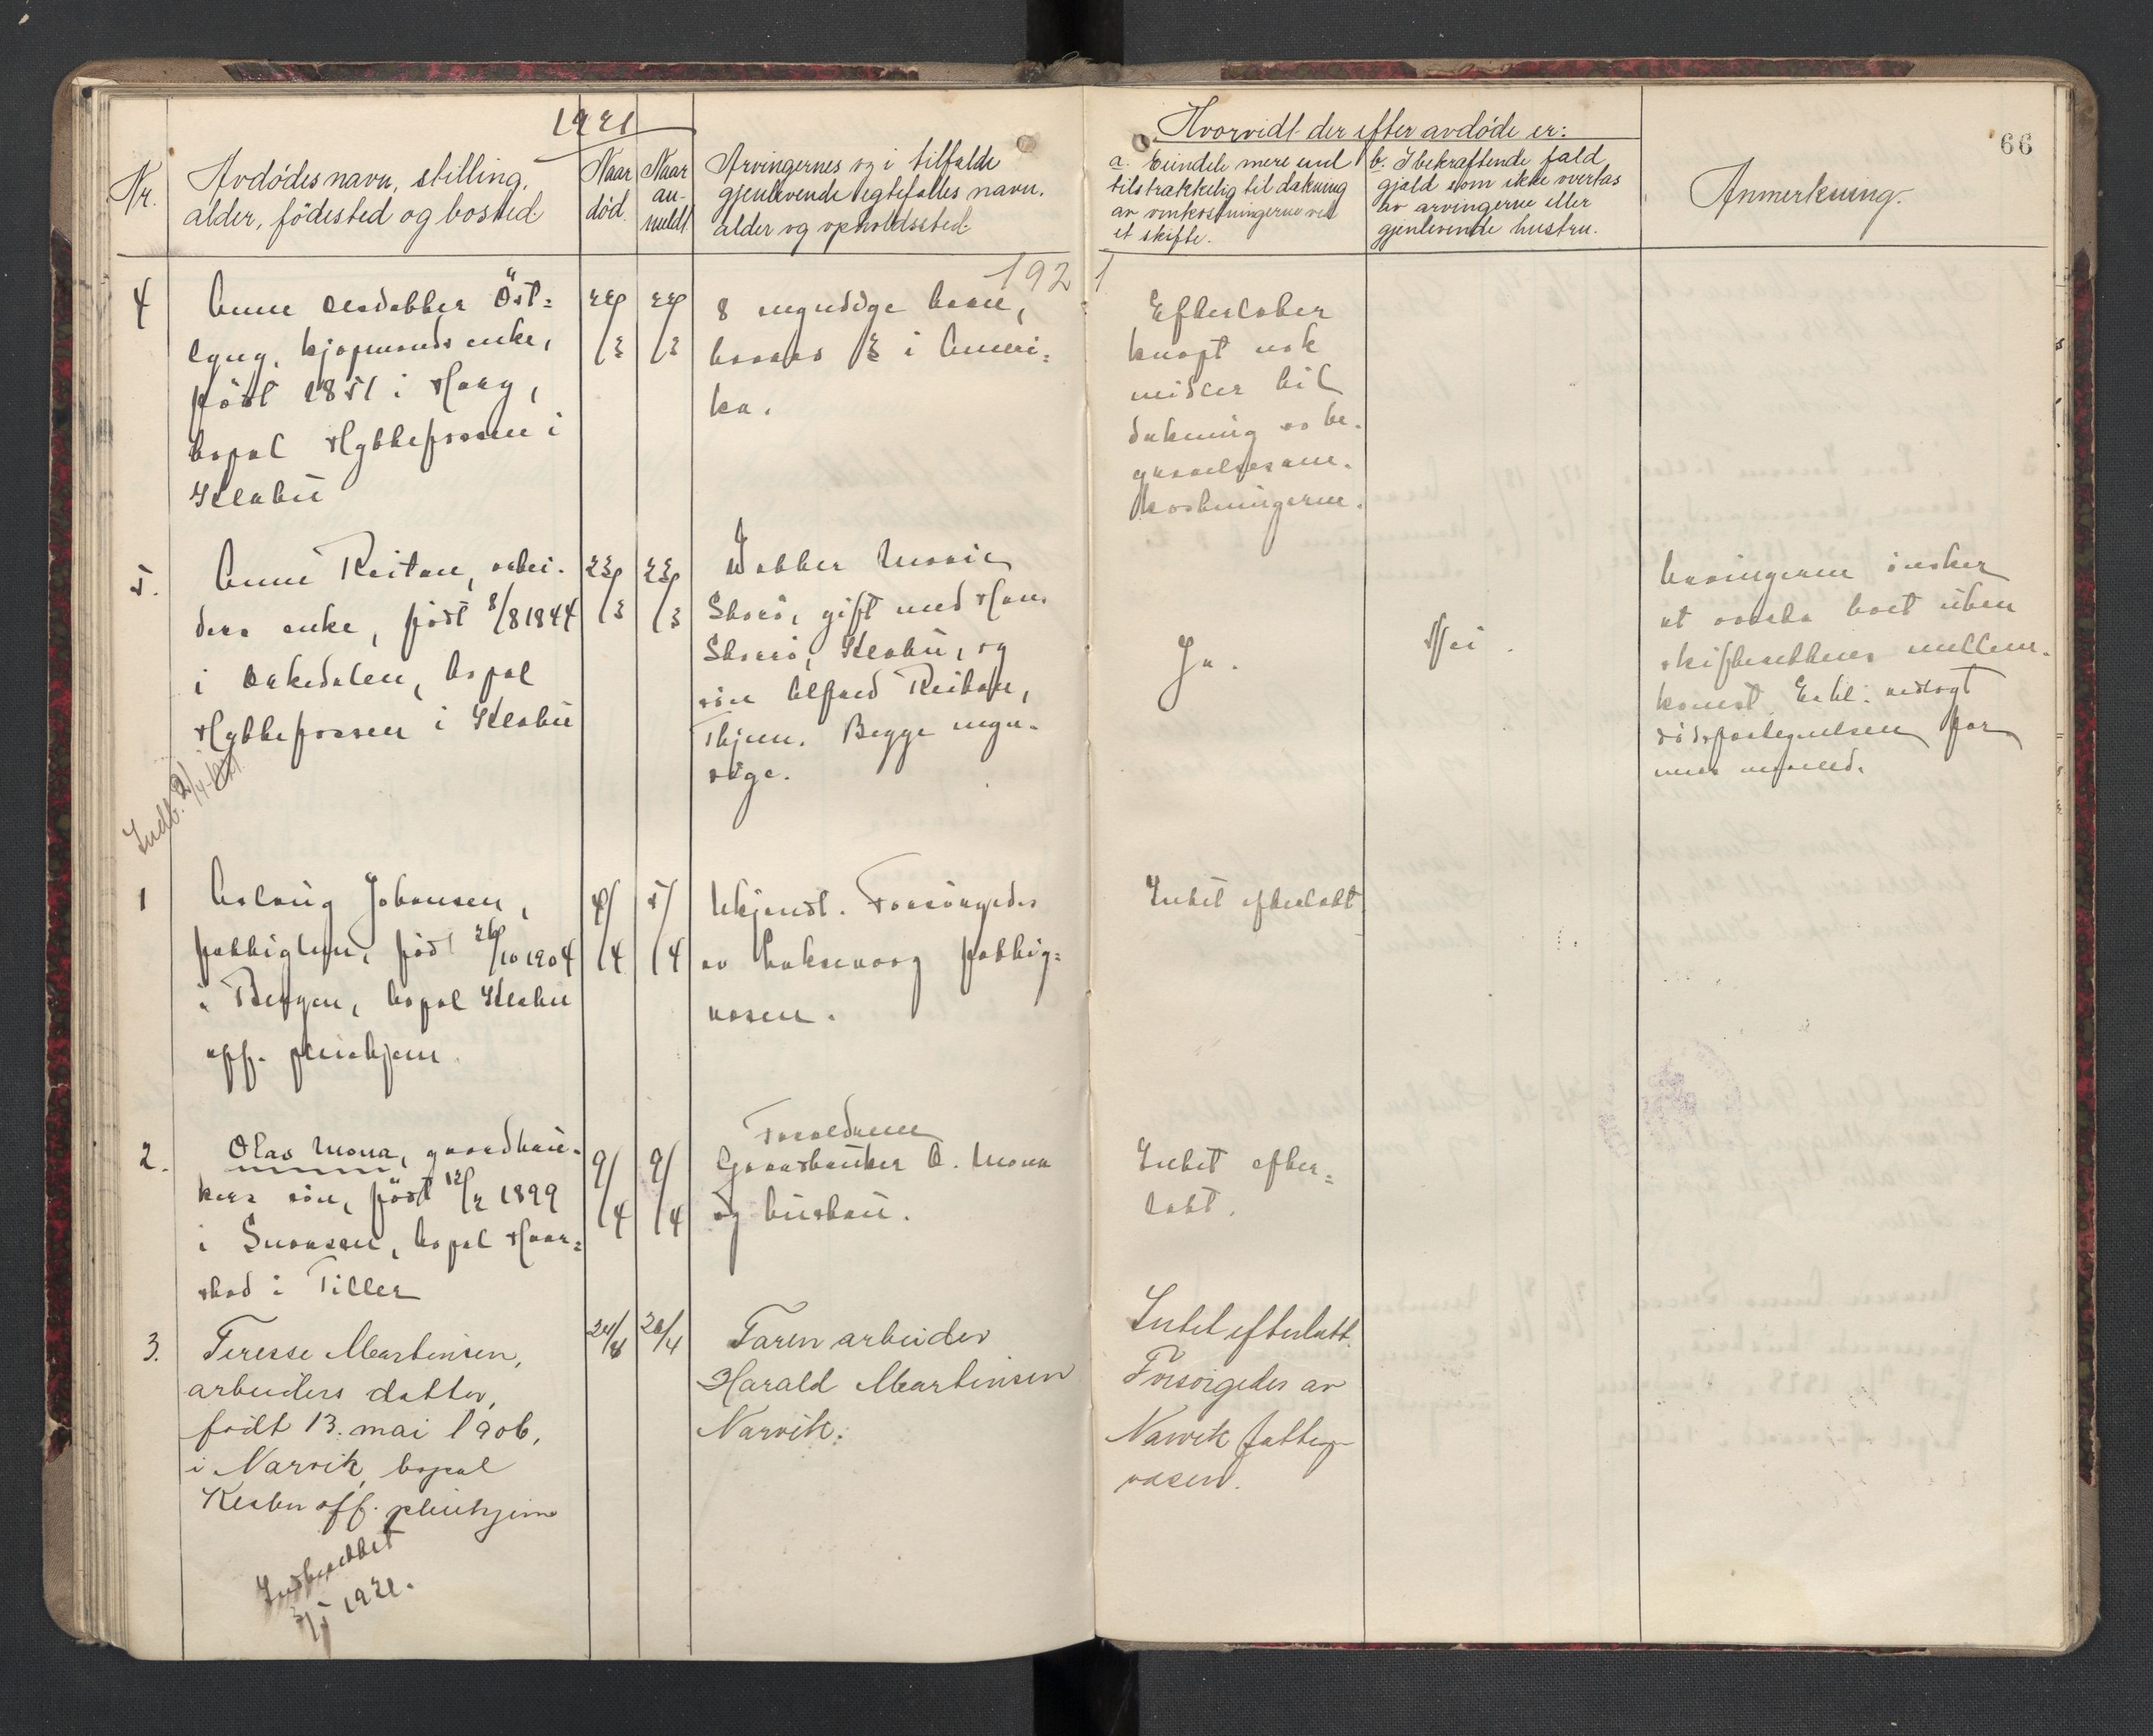 1921
Nr.
Avdødes navn, stilling,
alder, fødested og bosted.
Naar
død.
Naar
an-
meldt
Arvingernes og i tilfælde
gjenlevende egtefælles navn.
alder og opholdssted.
Hvorvidt der efter avdøde er:
a. Eiendele mere end
tilstrækkelig til dækning
av omkostningerne ved
et skifte.
b. I bekræftende fald,
gjæld som ikke overtas
av arvingerne eller
gjenlevende hustru.
Anmerkning.
66
1921
4
Anne Olsdatter Öst-
lyng, kjøpmands enke,
født 1851 i Horg,
bopæl Hyttefossen i
Klæbu
8 myndige barn,
hvorav 3 i Ameri-
ka.
Efterlater
knapt nok
midler til
dækning av be-
gravelsesom-
kostningerne.
5.
Anne Reitan, arbei-
ders enke, født 8/8 1844
i Orkedalen, bopæl
Hyttefossen i Klæbu
23/
/3
23/
/3
Datter Marie
gift med Hans
Klæbu, og
søn Alfred Reitan,
Thjem. Begge myn-
dige.
Ja.
Nei.
Arvingerne ønsker
at overta boet uten
skifterettens mellem-
komst. Erkl. utlagt
for
Indb. 2/4-1921
1
Aslaug Johansen,
fattiglem, født 26/10 1904
i Bergen, bopæl Klæbu
off. pleiehjem.
4/
/4
5/
/4
Ukjendt. Forsørgedes
av Laksevaag fattig-
væsen.
Intet efterlatt
2.
Olav Mona, gaardbru-
kers søn, født 12/2 1899
i Snaasen, bopæl Haar-
stad i Tiller
9/
/4
9/
/4
Forældrene
Gaardbruker O. Mona
og hustru.
Intet efter-
latt.
3.
Teresse Martinsen,
arbeiders datter,
født 13. mai 1906,
i Narvik, bopæl
Klæbu off. pleiehjem
24/4
26/4
Faren arbeider
Harald Martinsen
Narvik.
Intet efterlatt.
Forsørgedes av
Narvik fattig-
væsen.
Indberettet
3/5 1921.